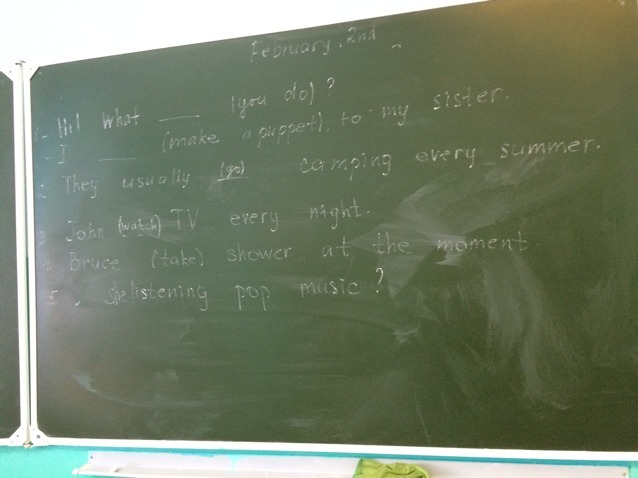 February, 2nd
1. Hi! What ___ (you do)?
- I ___ (make a puppet), to my sister.
2. They usually (go) camping every summer.
3 John (watch) TV every night.
4. Bruce (take) shower at the moment
5. she listening pop music?